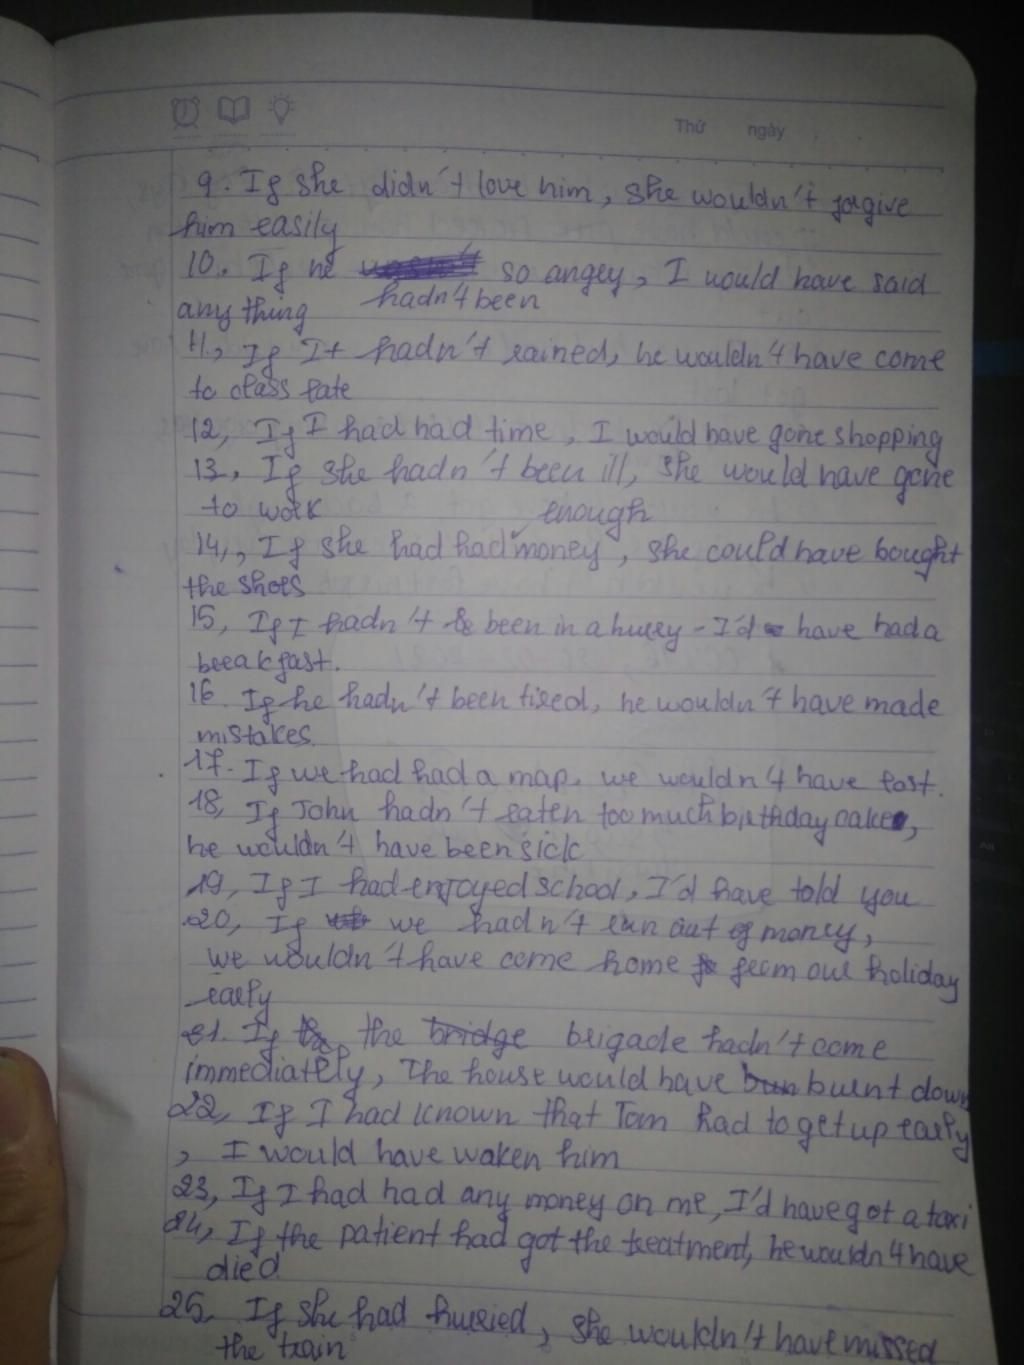 Thứ ngày
9. If she didn't love him, she wouldn't forgive
him easily
10. If he so angry, I would have said
hadn't been
any thing
11, If It hadn't rained, he wouldn't have come
to class late
12, If I had had time, I would have gone shopping
13, If she hadn't been ill, she would have gone
to work
enough
14, If she had had money, she could have bought
the shoes
15, If I hadn't been in a hurry - I'd have had a
breakfast.
16. If he hadn't been tired, he wouldn't have made
mistakes.
17. If we had had a map, we wouldn't have lost.
18, If John hadn't eaten too much birthday cake,
he wouldn't have been sick
19, If I had enjoyed school, I'd have told you
20, If we hadn't run out of money,
we wouldn't have come home from our holiday
early
21. If the bridge brigade hadn't come
immediately, The house would have burnt down
22, If I had known that Tom had to get up early
, I would have waken him
23, If I had had any money on me, I'd have got a taxi
24, If the patient had got the treatment, he wouldn't have
died
25, If she had hurried, she wouldn't have missed
the train